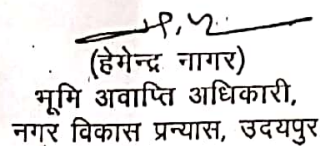 (हेमेन्द्र नागर)
भूमि अवाप्ति अधिकारी,
नगर विकास प्रन्यास, उदयपुर